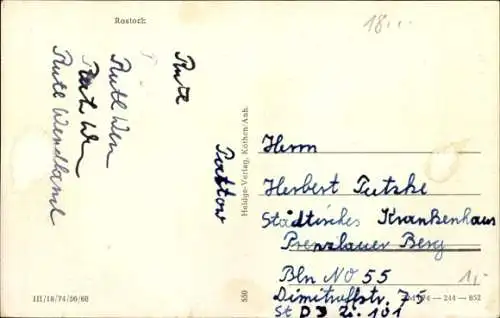 Rostock
18.--
Ruth
Ruth Wen
Ruth We
Ruth Wendland
Heldge-Verlag, Köthen/Anh.
550
Herrn
Herbert Putzke
Städtisches Krankenhaus
Prenzlauer Berg
Bln NO 55
1,-
Dimitroffstr. 75
- 244 - 852
St D3 Zi. 101
III/18/74/56/60